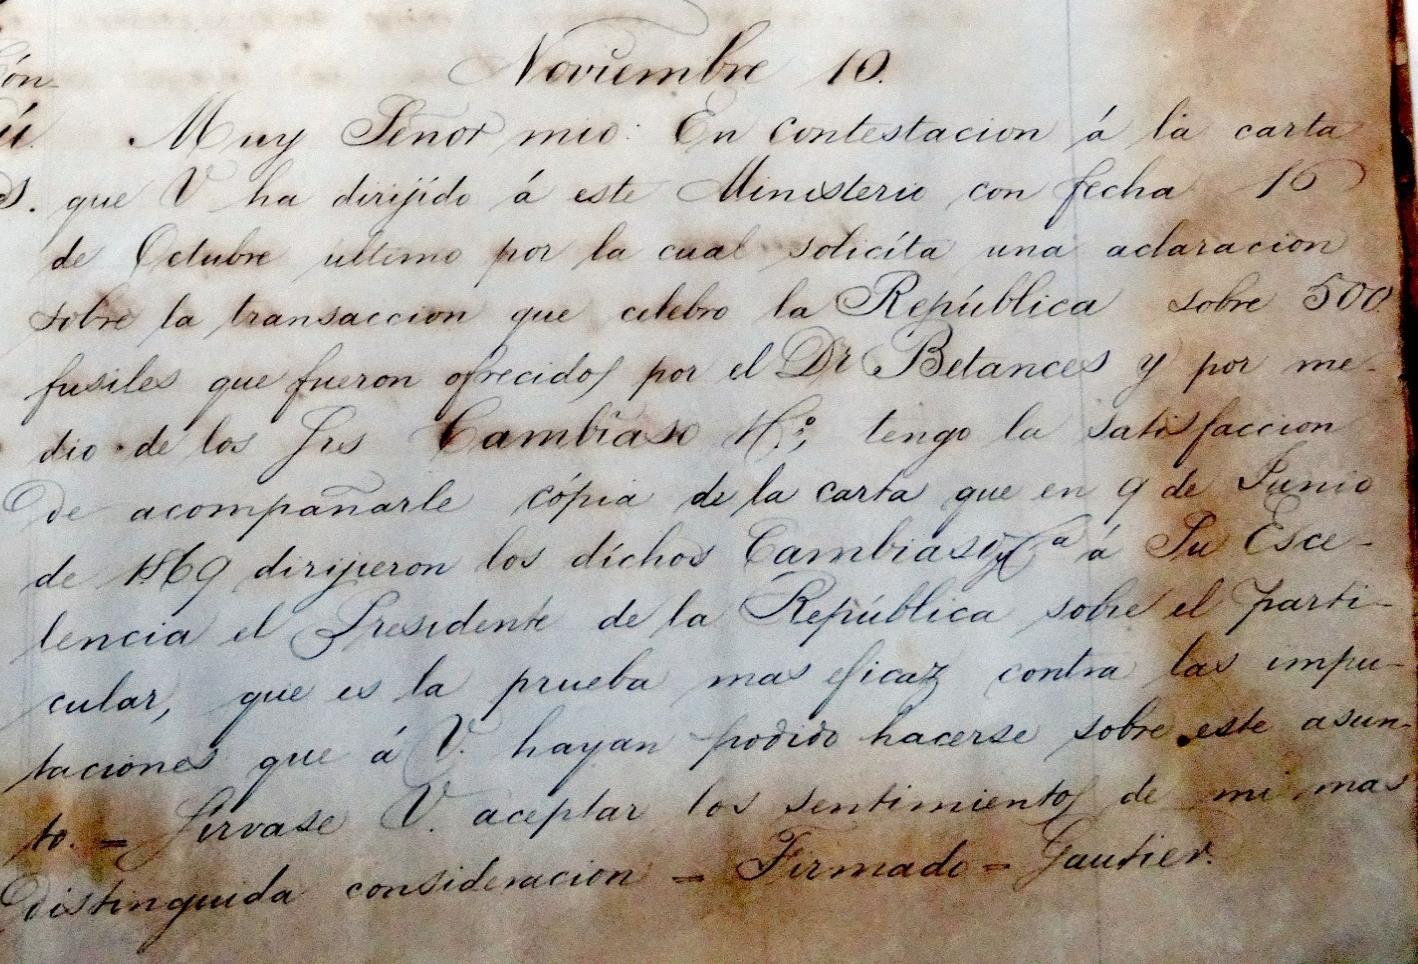 Noviembre 10.
Muy Señor mio: En contestacion á la carta
que V ha dirijido á este Ministerio con fecha 16
de Octubre ultimo por la cual solicíta una aclaracion
sobre la transaccion que celebro la República sobre 500
fusiles que fueron ofrecidos por el Dr Betances y por me-
dio de los Srs Cambiaso Hº; tengo la satisfaccion
de acompañarle cópia de la carta que en 9 de Junio
de 1869 dirijieron los díchos Cambiaso y Cª á Su Esce-
lencia el Presidente de la República sobre el parti-
cular, que es la prueba mas eficaz contra las impu-
taciones que á V. hayan podido hacerse sobre este asun-
to. = Sírvase V. aceptar los sentimientos de mi mas
distinguida consideracion = Firmado = Gautier.